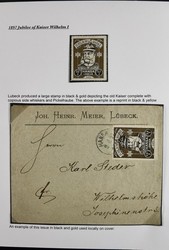 1897 Jubilee of Kaiser Wilhelm I
Lubeck produced a large stamp in black & gold depicting the old Kaiser complete with
copious side whiskers and Pickelhaube. The above example is a reprint in black & yellow.
JOH. HEINR. MEIER, LÜBECK.
Karl Steder
Wilhelmshöhe
Josephinenstr.
An example of this issue in black and gold used locally on cover